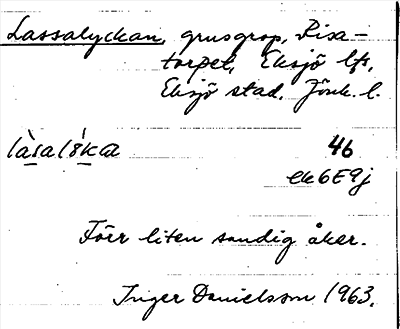 Lassalyckan, grusgrop, Risa-
torpet, Eksjö lfs,
Eksjö stad. Jönk. l.
46
ek6E9j
Förr liten sandig åker.
Inger Danielsson 1963.